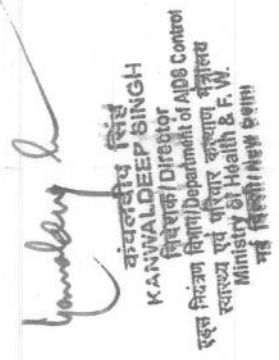 कंवलदीप सिंह
KANWALDEEP SINGH
निदेशक/Director
एड्स नियंत्रण विभाग/Department of AIDS Control
स्वास्थ्य एवं परिवार कल्याण मंत्रालय
Ministry of Health & F. W.
नई दिल्ली/New Delhi